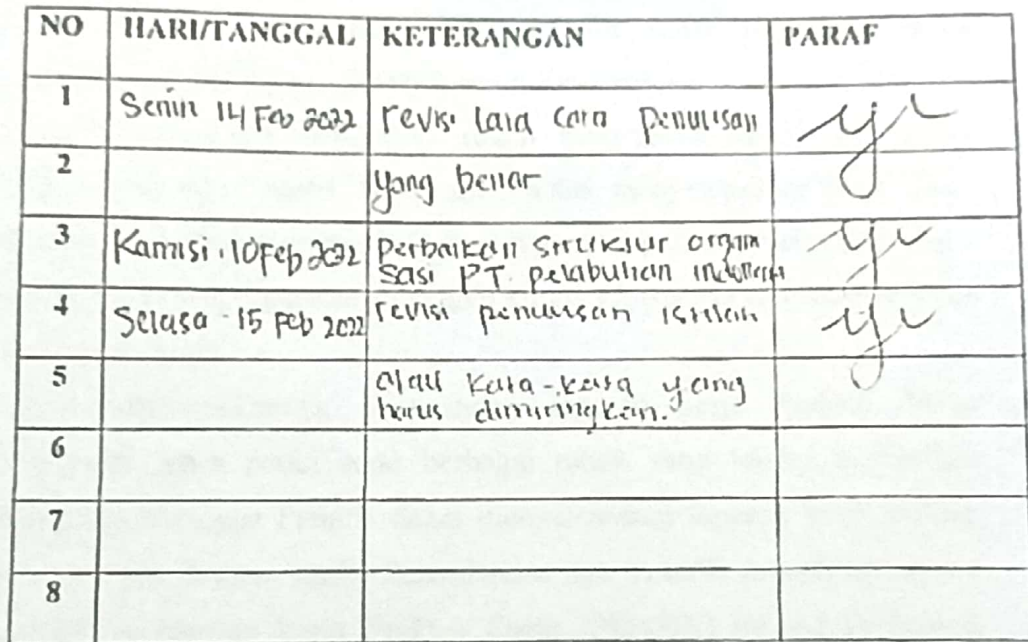 NO HARI/TANGGAL KETERANGAN PARAF
1 Senin 14 Feb 2022 revisi tata cara penulisan
2 yang benar
3 Kamis, 10 Feb 2022 perbaikan struktur organi
sasi PT. pelabuhan indonesia
4 Selasa 15 Feb 2022 revisi penulisan istilah
5 atau kata-kata yang
harus dimiringkan.
6
7
8